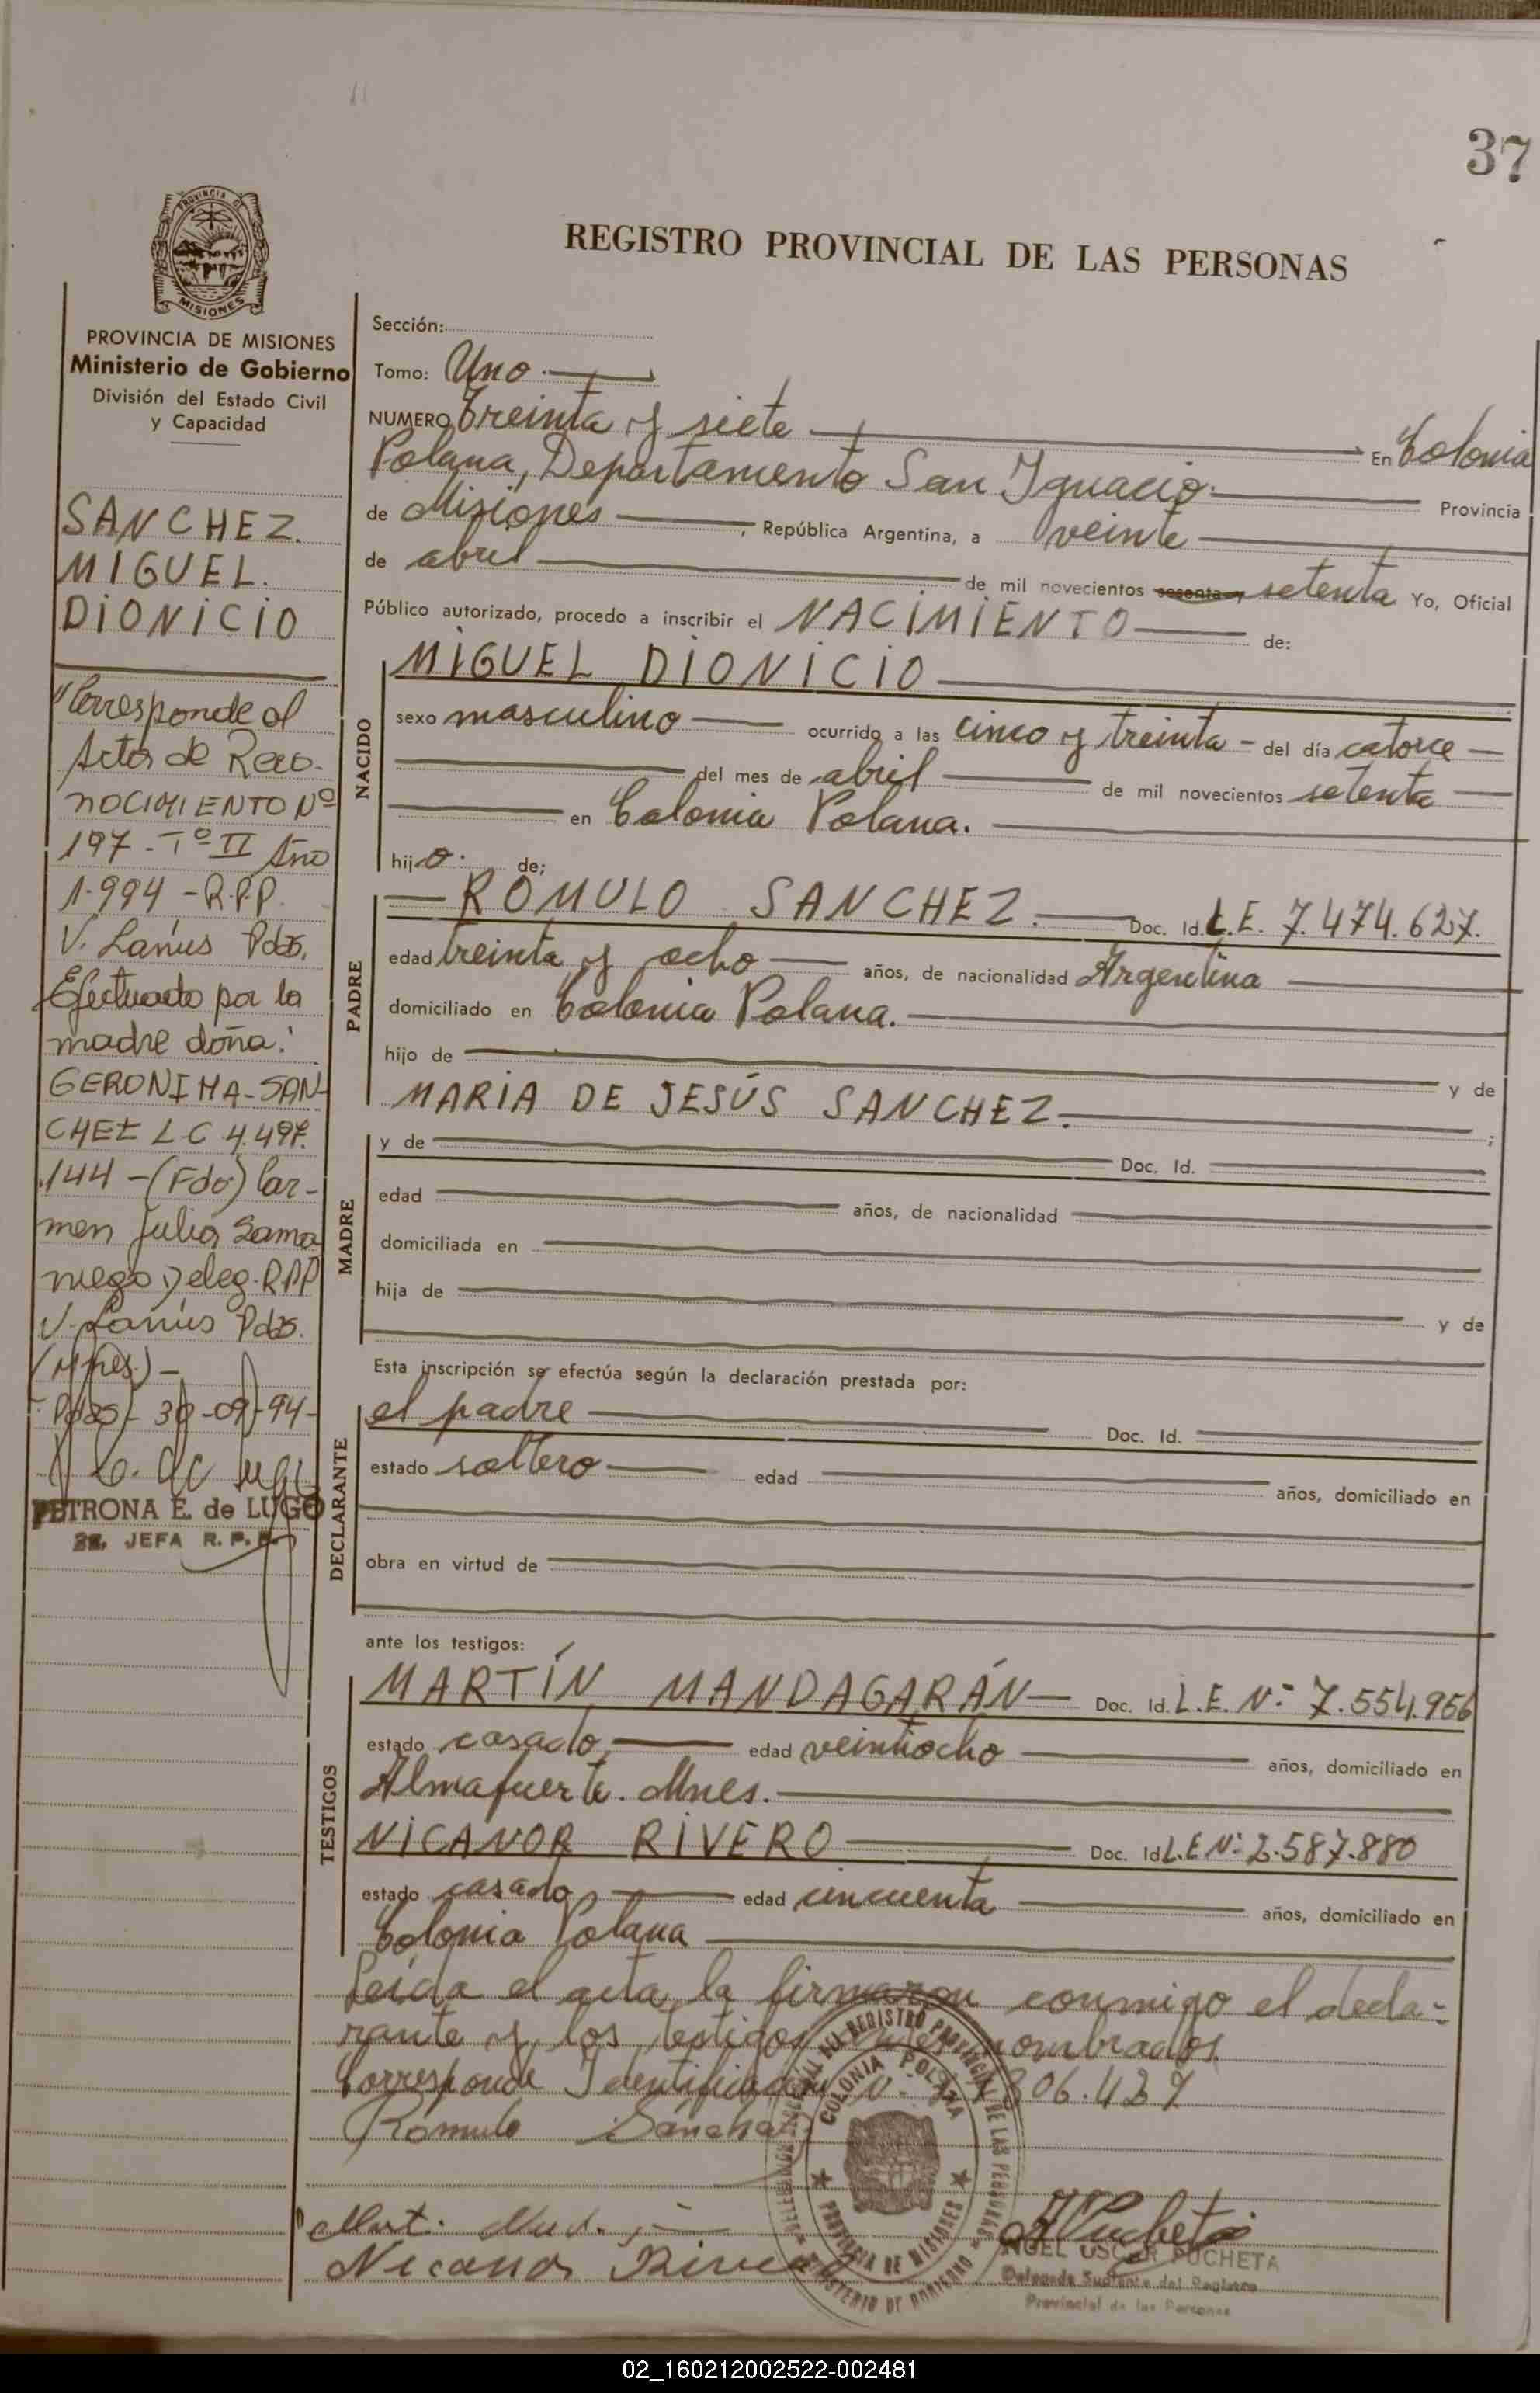 37
REGISTRO PROVINCIAL DE LAS PERSONAS
PROVINCIA DE MISIONES
Ministerio de Gobierno
División del Estado Civil
y Capacidad
SANCHEZ.
MIGUEL.
DIONICIO
Corresponde al
Acta de Reco-
NOCIMIENTO Nº
197 - Tº II Año
1.994 - R.P.P.
V. Lanús Pdas.
Efectuado por la
madre doña:
GERONIMA - SAN-
CHEZ L.C 4.497.
144 - (Fdo) Car-
men Julia Sama
niego Deleg. RPP
V. Lanús Pdas.
(Mnes) -
Pdas - 30-09-94-
PETRONA E. de LUGO
JEFA R. P. P.
Sección:
Tomo: Uno.
NUMERO Treinta y siete En Colonia
Polana, Departamento San Ignacio. Provincia
de Misiones, República Argentina, a veinte
de abril de mil novecientos sesenta y setenta Yo, Oficial
Público autorizado, procedo a inscribir el NACIMIENTO de:
NACIDO
MIGUEL DIONICIO
sexo masculino ocurrido a las cinco y treinta - del día catorce
del mes de abril de mil novecientos setenta
en Colonia Polana.
hijo. de;
PADRE
ROMULO SANCHEZ. Doc. Id. L.E. 7.474.627.
edad treinta y ocho años, de nacionalidad Argentina
domiciliado en Colonia Polana.
hijo de y de
MARIA DE JESÚS SANCHEZ. ;
MADRE
y de Doc. Id.
edad años, de nacionalidad
domiciliada en
hija de y de
Esta inscripción se efectúa según la declaración prestada por:
DECLARANTE
el padre Doc. Id.
estado soltero edad años, domiciliado en
obra en virtud de
ante los testigos:
TESTIGOS
MARTÍN MANDAGARÁN Doc. Id. L.E. Nº 7.554.956
estado casado, edad veintiocho años, domiciliado en
Almafuerte. Mnes.
NICANOR RIVERO Doc. Id L.E Nº 2.587.880
estado casado, edad cincuenta años, domiciliado en
Colonia Polana
Leída el acta la firmaron conmigo el decla-
rante y los testigos nombrados.
Corresponde Identificación Nº 306.437
Rómulo Sánchez
DELEGACION DEL REGISTRO PROVINCIAL DE LAS PERSONAS
MINISTERIO DE GOBIERNO
COLONIA POLANA
PROVINCIA DE MISIONES
Mart. Mand.
Nicanor Rivero
ANGEL OSCAR PUCHETA
Delegado Suplente del Registro
Provincial de las Personas
02_160212002522-002481